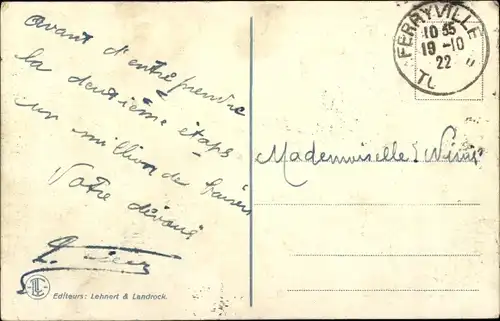 avant d'entreprendre
la deuxième étape
un million de baisers
Votre dévoué
FERRYVILLE
10 35
19 -10
22
Mademoiselle
Editeurs: Lehnert & Landrock.